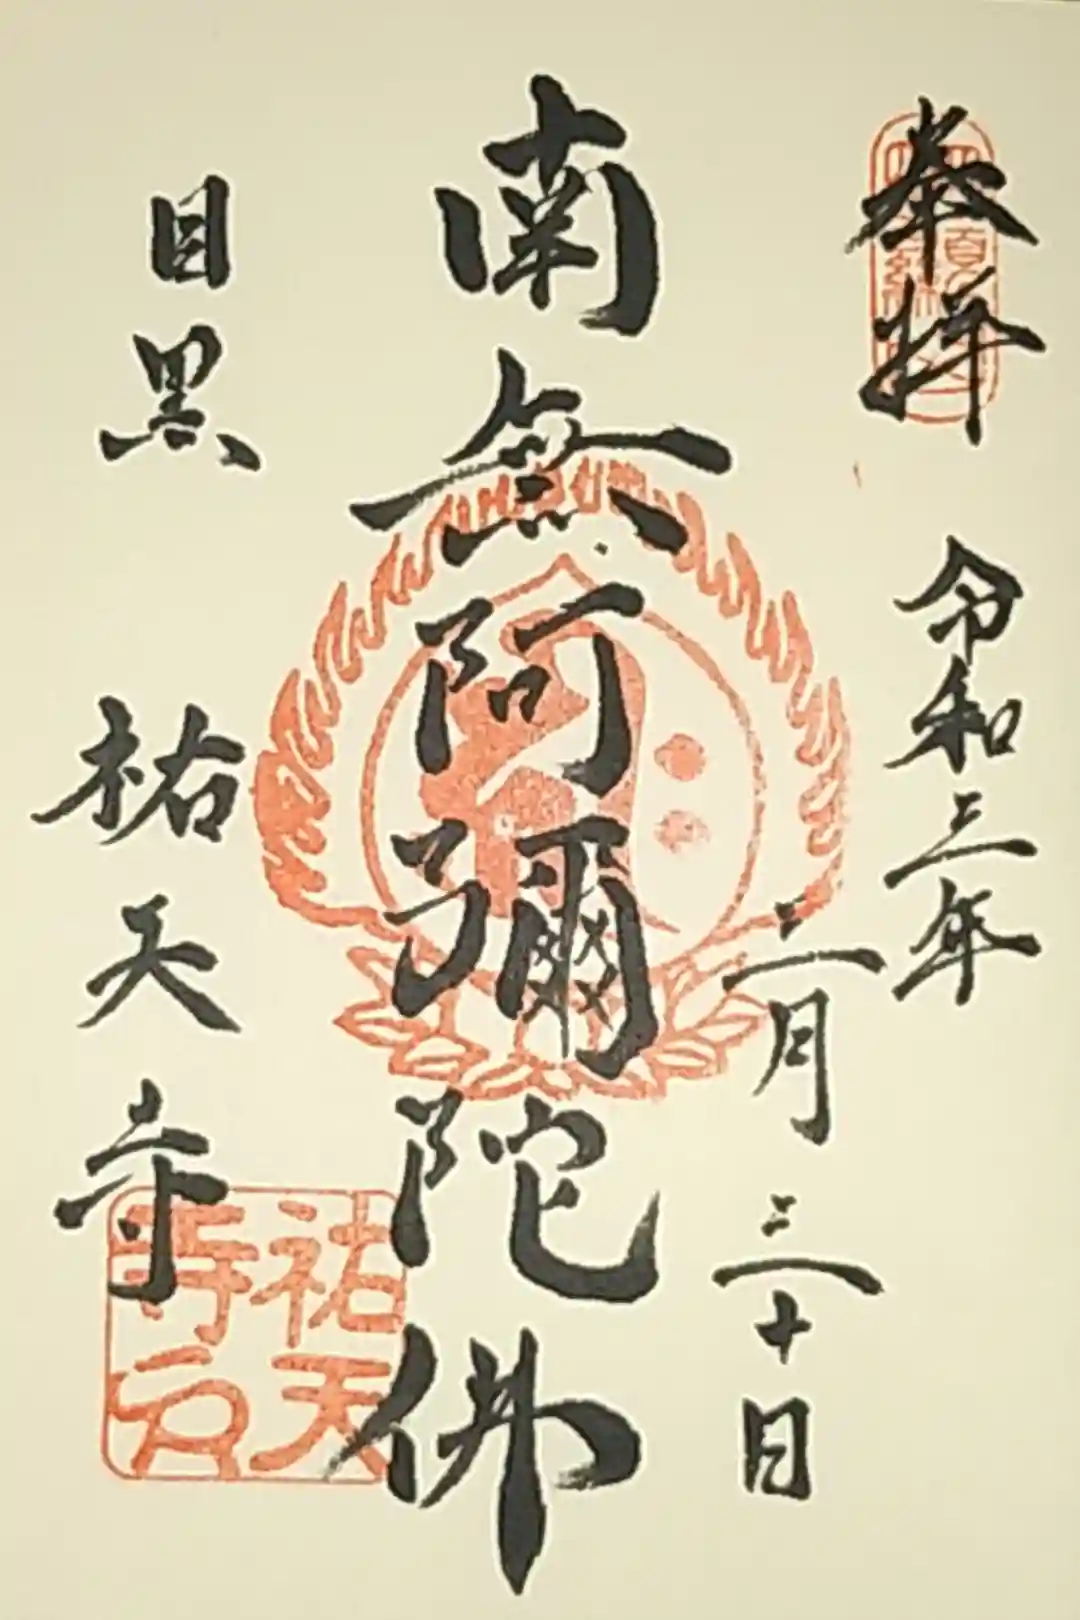 奉拜
令和三年
三月三十日
南無阿彌陀佛
目黒
祐天寺
祐天
寺印